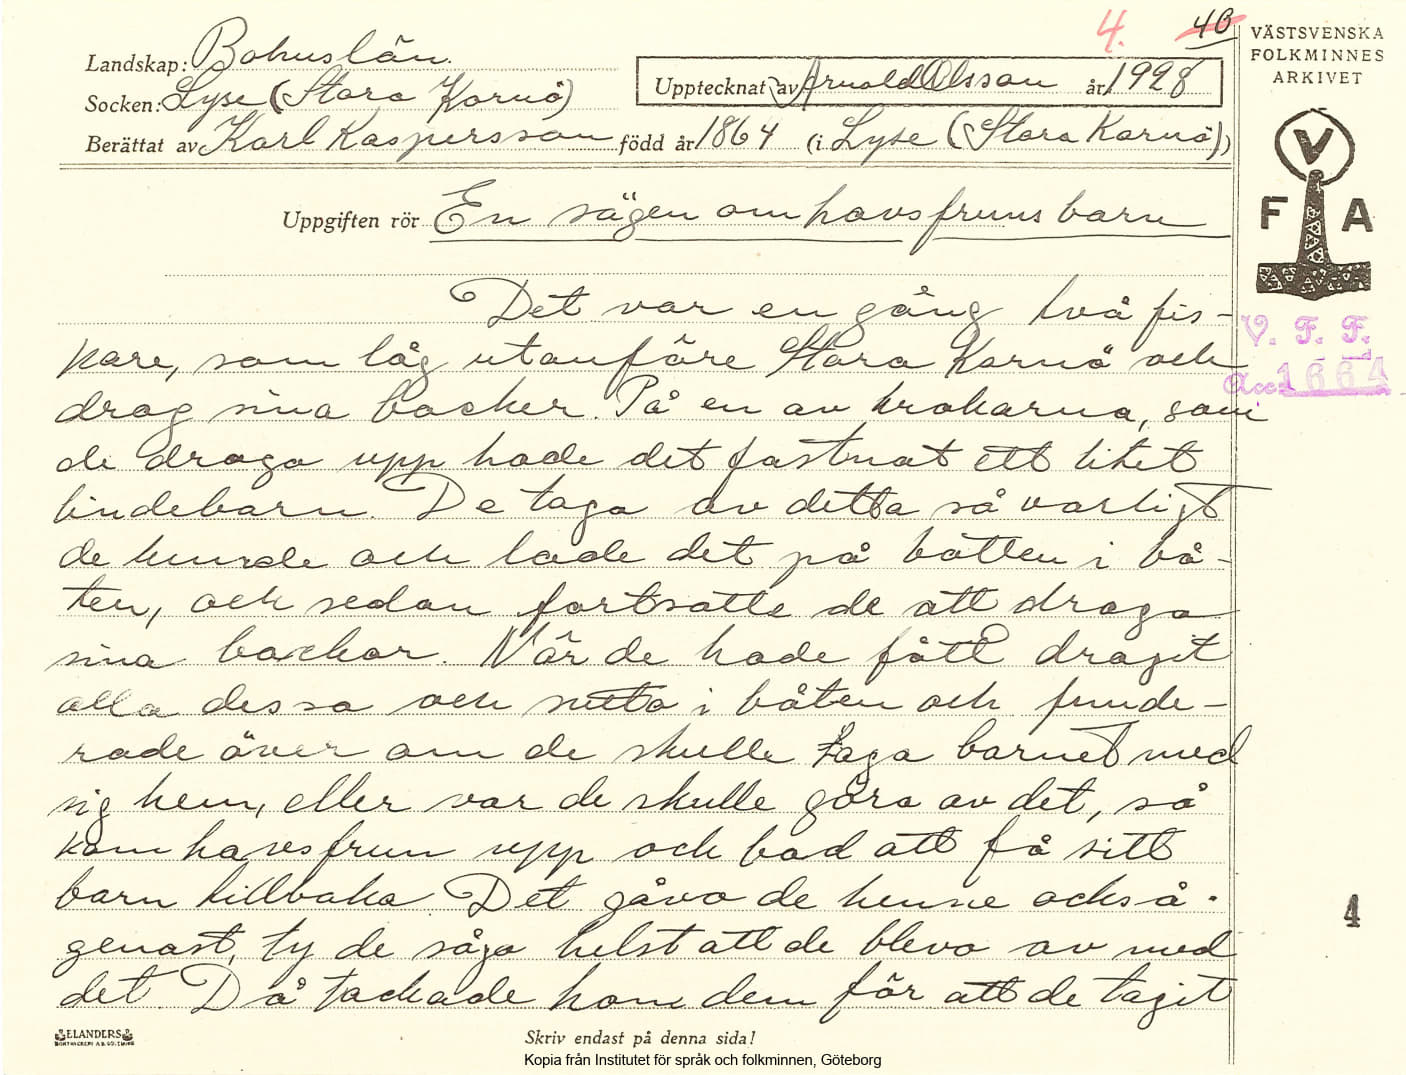 4. 4B
VÄSTSVENSKA
FOLKMINNES
ARKIVET
Landskap: Bohuslän.
Socken: Lyse (Stora Kornö)
Upptecknat av Arnold Olsson år 1928
Berättat av Karl Kaspersson född år 1864 (i Lyse (Stora Kornö))
V
F A
Uppgiften rör En sägen om havsfruns barn
Det var en gång två fis-
V. F. F.
kare, som låg utanföre Stora Kornö och
Acc. 1664
drog sina backer. På en av krokarna, som
de droga upp hade det fastnat ett litet
lindebarn. De toga av detta så varligt
de kunde och lade det på båtten i bå-
ten, och sedan fortsatte de att draga
sina backor. När de hade fått dragit
alla dessa och sutto i båten och funde-
rade över om de skulle taga barnet med
sig hem, eller var de skulle göra av det, så
kom havsfrun upp och bad att få sitt
barn tillbaka Det gåvo de henne också.
4
genast, ty de sågo helst att de blevo av med
det. Då tackade hon dem för att de tagit
ELANDERS
Skriv endast på denna sida!
Kopia från Institutet för språk och folkminnen, Göteborg